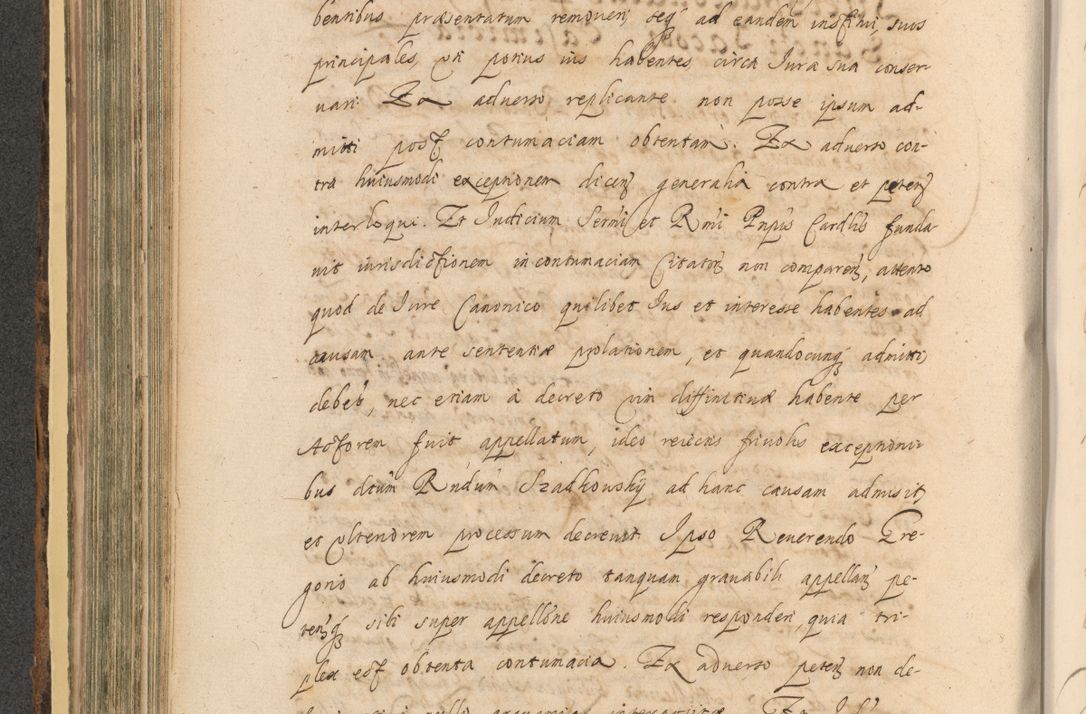 bentibus præsentatum removeri seq ad eandem institui, suos
principales, uti potius ius habentes circa Jura sua conser-
vari Ex adverso replicante non posse ipsum ad-
mitti post contumaciam obtentam. Ex adverso con-
tra huiusmodi exceptionem dicens generalia contra et petens
interloqui. Et Judicium Sermi et Rmi Pnpis Cardlis funda
vit iurisdictionem in contumaciam Citator non comparens, attento
quod de Jure Canonico quilibet Ius et interesse habentes ad
causam ante sententiæ prolationem, et quandocunq admitti
debet, nec etiam à decreto vim diffinitivæ habente per
Actorem fuit appellatum, ideo reiectis frivolis exceptioni-
bus dtum Rndum Szadkowsky ad hanc causam admisit,
et ulteriorem processum decrevit Ipso Reverendo Gre-
gorio ab huiusmodi decreto tanquam gravabili appellan pe-
tensq sibi super appellone huiusmodi responderi, quia tri-
plex est obtenta contumacia. Ex adverso petens non de-